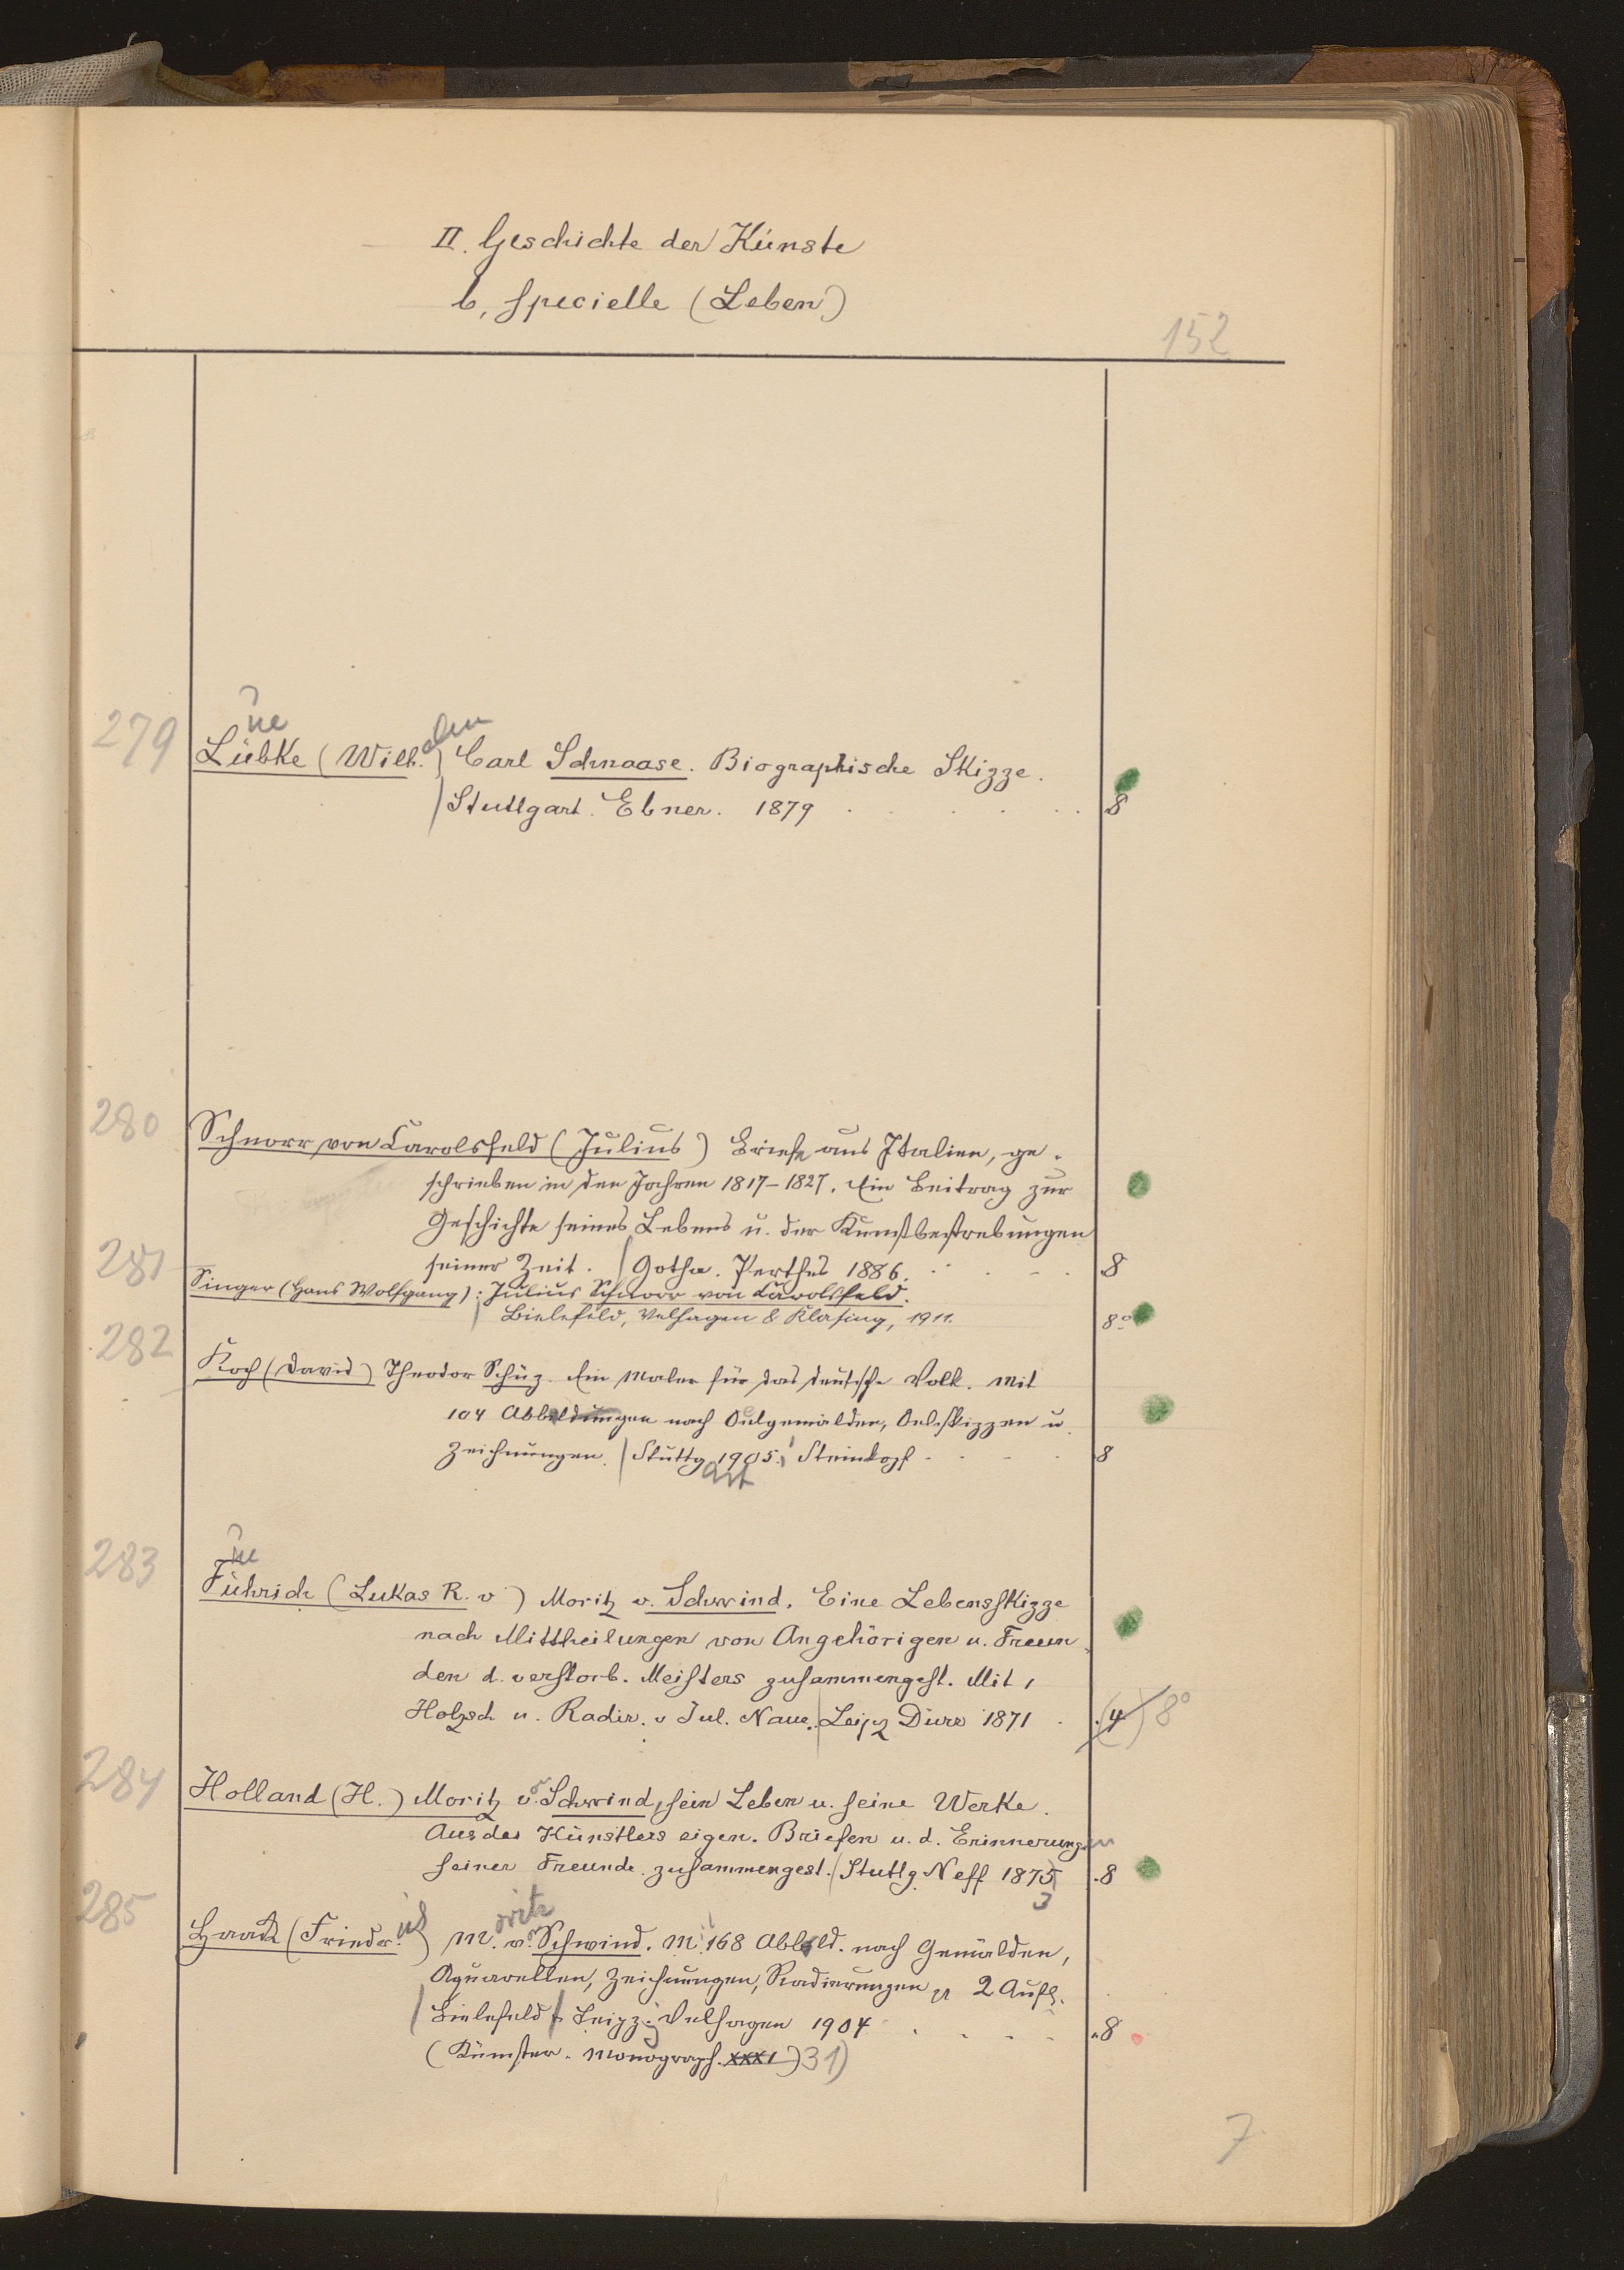 II. Geschichte der Künste
b, specielle (Leben)
152
279
ue
elm
Lübke (Wilh.) Carl Schnaase. Biographische Skizze.
Stuttgart. Ebner. 1879 . . . . . 8
280
Schnorr von Carolsfeld (Julius) Briefe aus Italien, ge-
schrieben in den Jahren 1817-1827. Ein Beitrag zur
Geschichte seines Lebens u. der Kunstbestrebungen
seiner Zeit. / Gotha. Perthes 1886. . . . . 8
281
Singer (Hans Wolfgang): Julius Schnorr von Carolsfeld.
/ Bielefeld, Velhagen & Klasing, 1911. 8°
282
Koch (David) Theodor Schüz. Ein Maler für das deutsche Volk. Mit
104 Abbildungen nach Oelgemälden, Oelskizzen u.
Zeichnungen. / Stuttg. 1905. Steinkopf . . . . 8
art
283
ue
Führich (Lukas R. v) Moritz v. Schwind. Eine Lebensskizze
nach Mittheilungen von Angehörigen u. Freun
den d. verstorb. Meisters zusammengest. Mit 1
Holzsch u. Radir. v Jul. Naue. / Leipz Dürr 1871 . . (4) 8°
284
Holland (H.) Moritz v. Schwind, sein Leben u. seine Werke.
Aus des Künstlers eigen. Briefen u. d. Erinnerungen
seiner Freunde zusammengest. / Stuttg. Neff 1875 . 8
3
285
ich
oritz
Haack (Friedr.) M. v. Schwind. M. 168 Abbild. nach Gemälden,
Aquarellen, Zeichnungen, Radierungen 2 Aufl.
/ Bielefeld / Leipzig Velhagen 1904 . . . . . 8
(Künstler-Monograph. XXXI) 31)
7